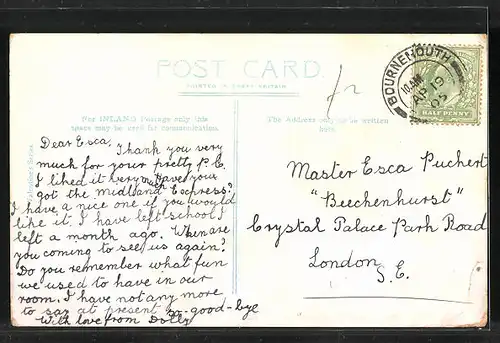 POST CARD.
PRINTED IN GREAT BRITAIN
For INLAND Postage only this
space may be used for communication.
The Address only to be written
here.
BOURNEMOUTH
10. AM
AP 19
05
HALF PENNY
Dear Esca,
Thank you very
much for your pretty P.C.
I liked it very much Have you
got the Midland Express?
I have a nice one if you would
like it. I have left school I
left a month ago. When are
you coming to see us again?
Do you remember what fun
we used to have in our
room. I have not any more
to say at present so good-bye
With love from Dolly
Master Esca Puchert
"Beechenhurst"
Crystal Palace Park Road
London
S.E.